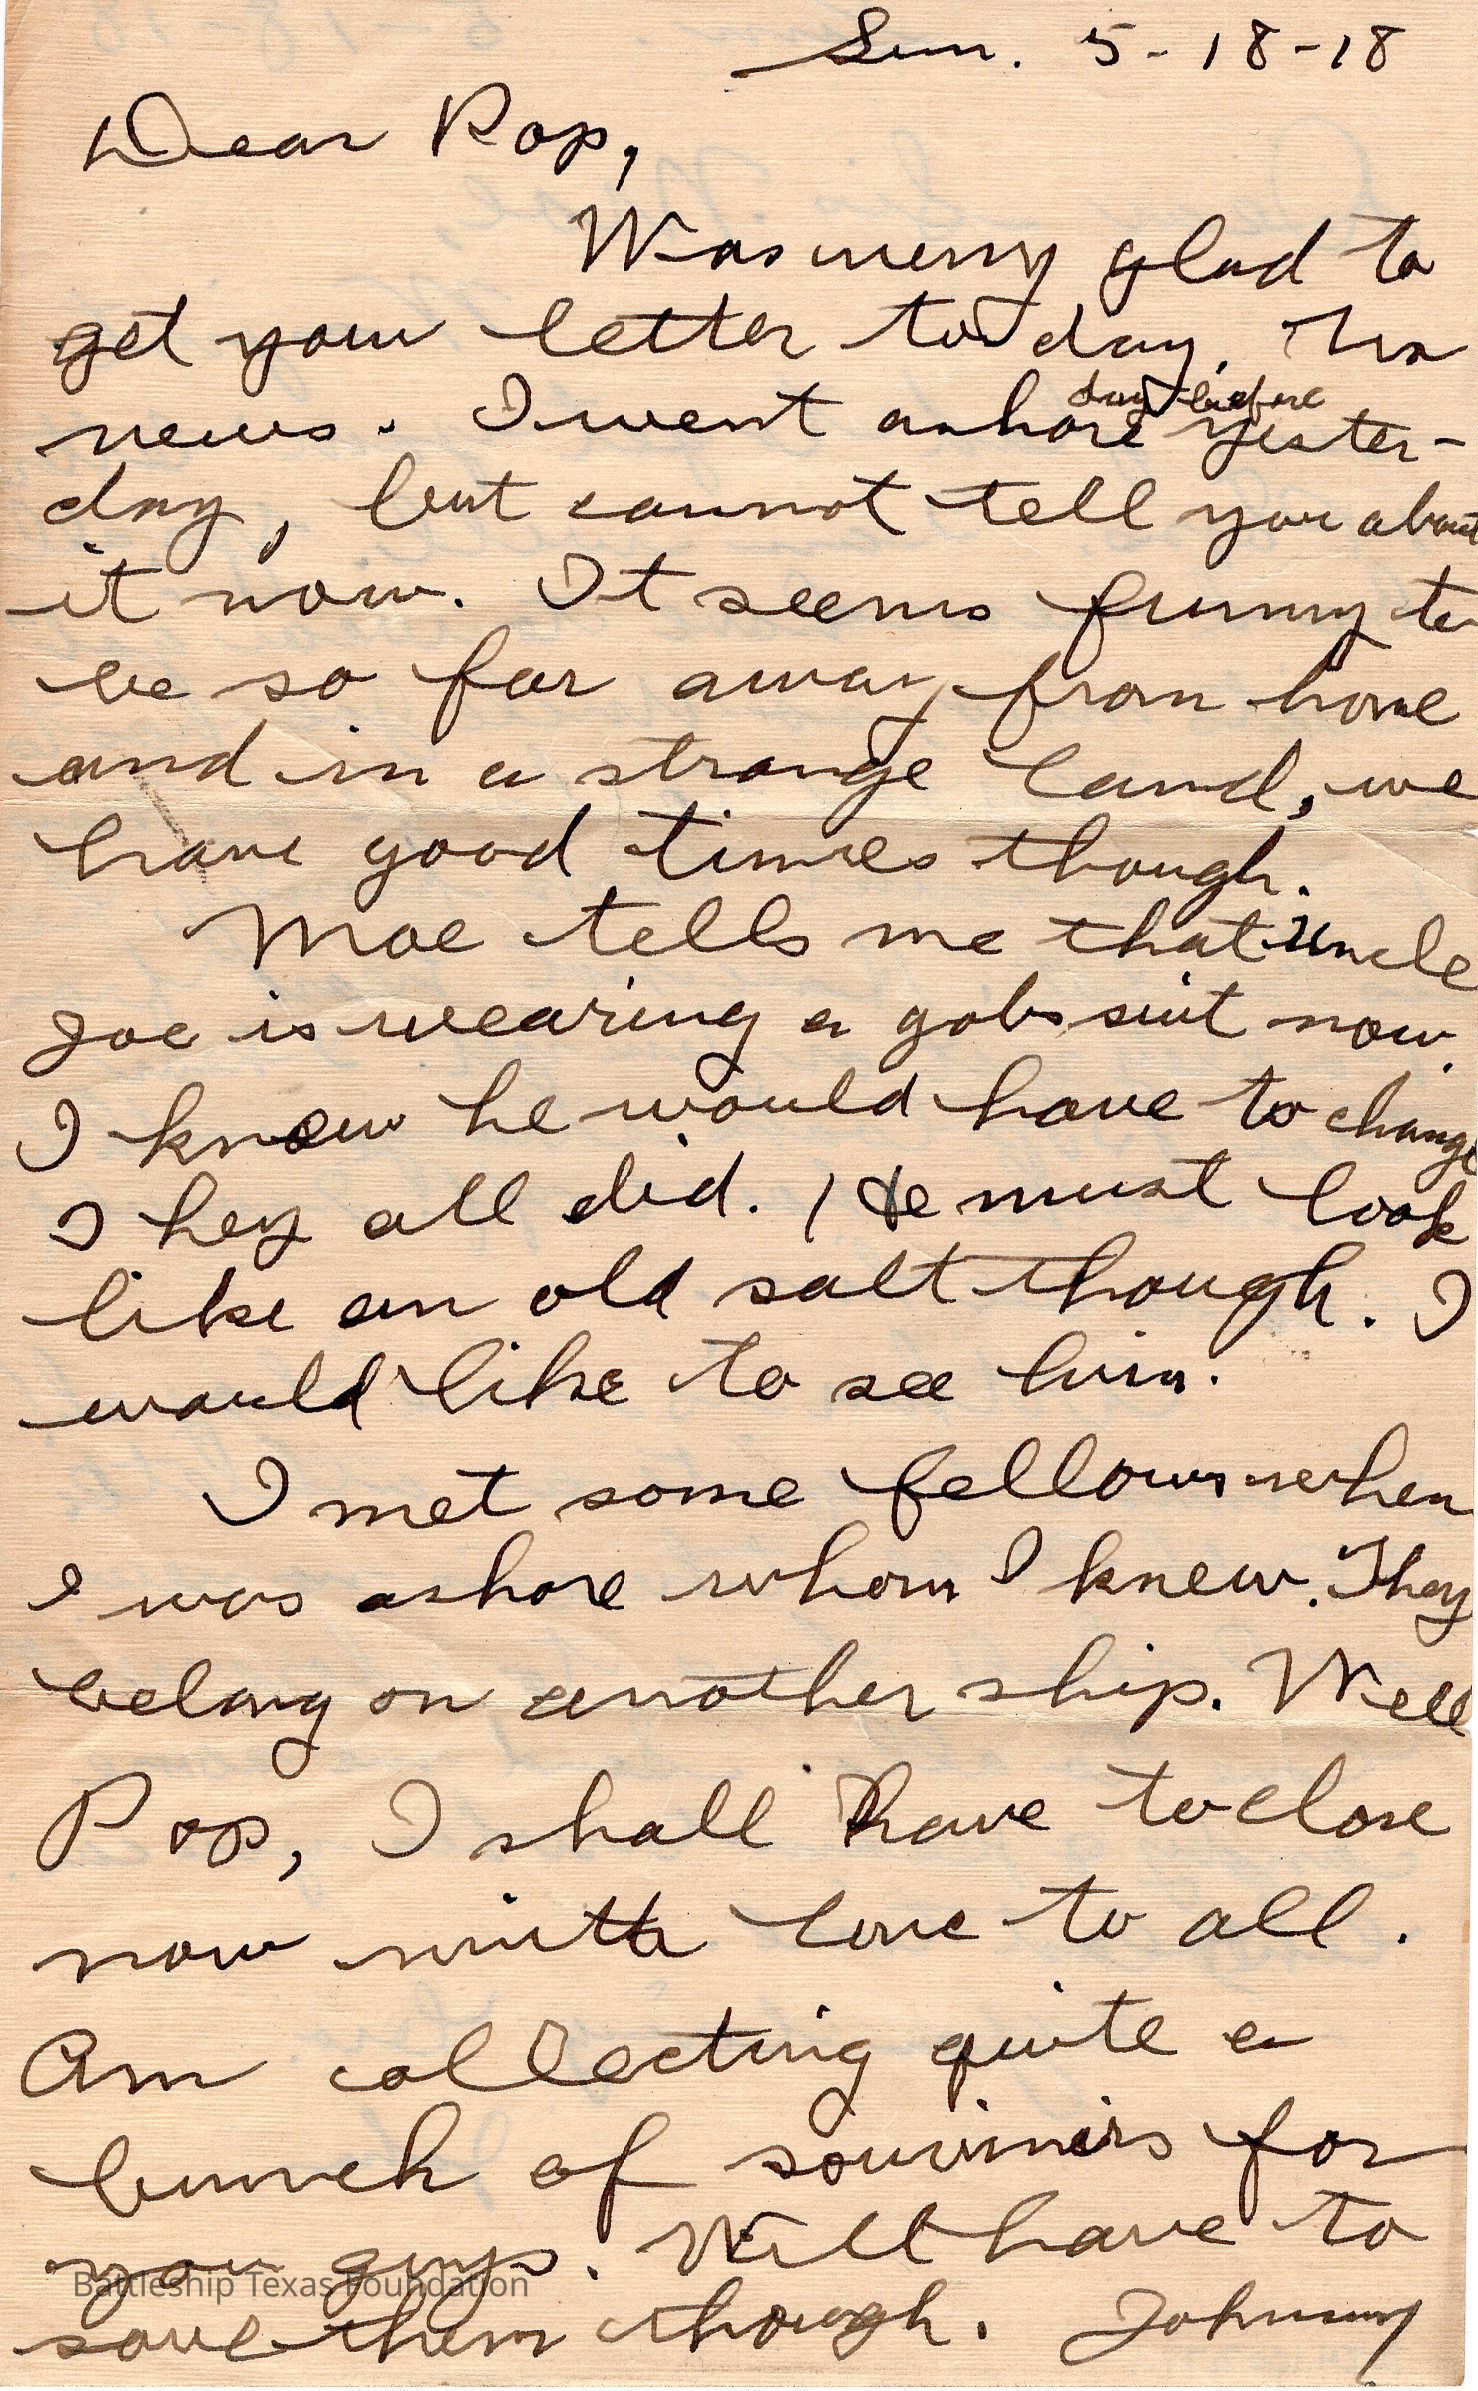 Sun. 5-18-18
Dear Pop,
Was very glad to
get your letter today. No
day before
news. I went ashore yester-
day, but cannot tell you about
it now. It seems funny to
be so far away from home
and in a strange land, we
have good times though.
Mae tells me that Uncle
Joe is wearing a gobs suit now.
I knew he would have to change
They all did. He must look
like an old salt though. I
would like to see him.
I met some fellows when
I was ashore whom I knew. They
belong on another ship. Well
Pop, I shall have to close
now with love to all.
Am collecting quite a
bunch of souvinirs for
you guys. Will have to
Battleship Texas Foundation
save them though. Johnny